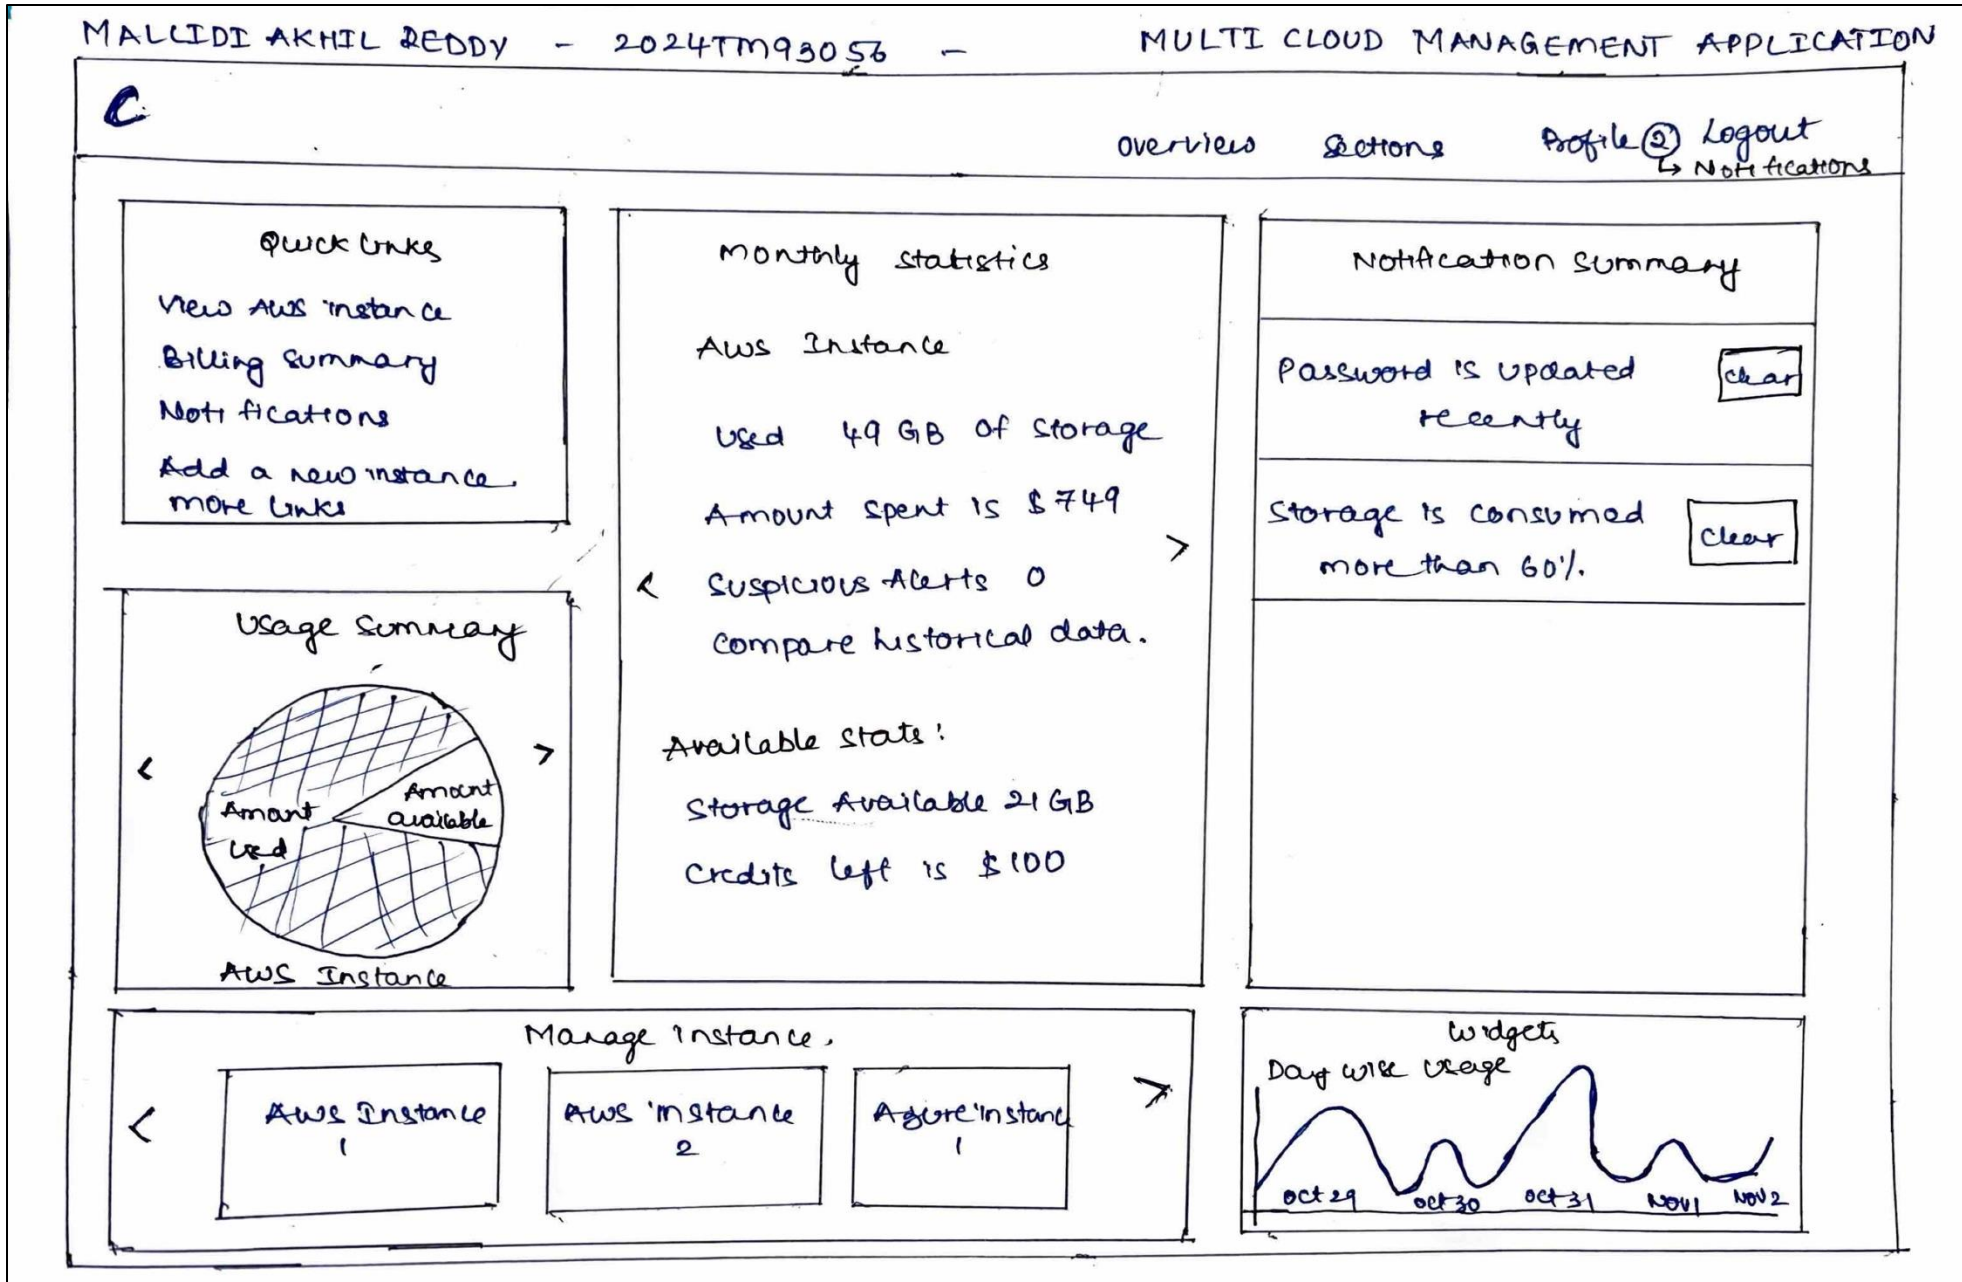 MALLIDI AKHIL REDDY - 2024TM93056 - MULTI CLOUD MANAGEMENT APPLICATION
C
overview Sections Profile ② Logout
↳ Notifications
Quick links
View AWS instance
Billing summary
Notifications
Add a new instance.
more links
Usage summary
<
>
Amount
used
Amount
available
AWS Instance
Monthly statistics
AWS Instance
Used 49 GB of storage
Amount spent is $749
>
< Suspicious Alerts 0
Compare historical data.
Available stats:
Storage Available 21 GB
Credits left is $100
Notification summary
Password is updated
recently
clear
Storage is consumed
more than 60%.
clear
Manage instance.
<
AWS Instance
1
AWS instance
2
Azure instance
1
>
Widgets
Day wise usage
oct 29 oct 30 oct 31 Nov 1 Nov 2